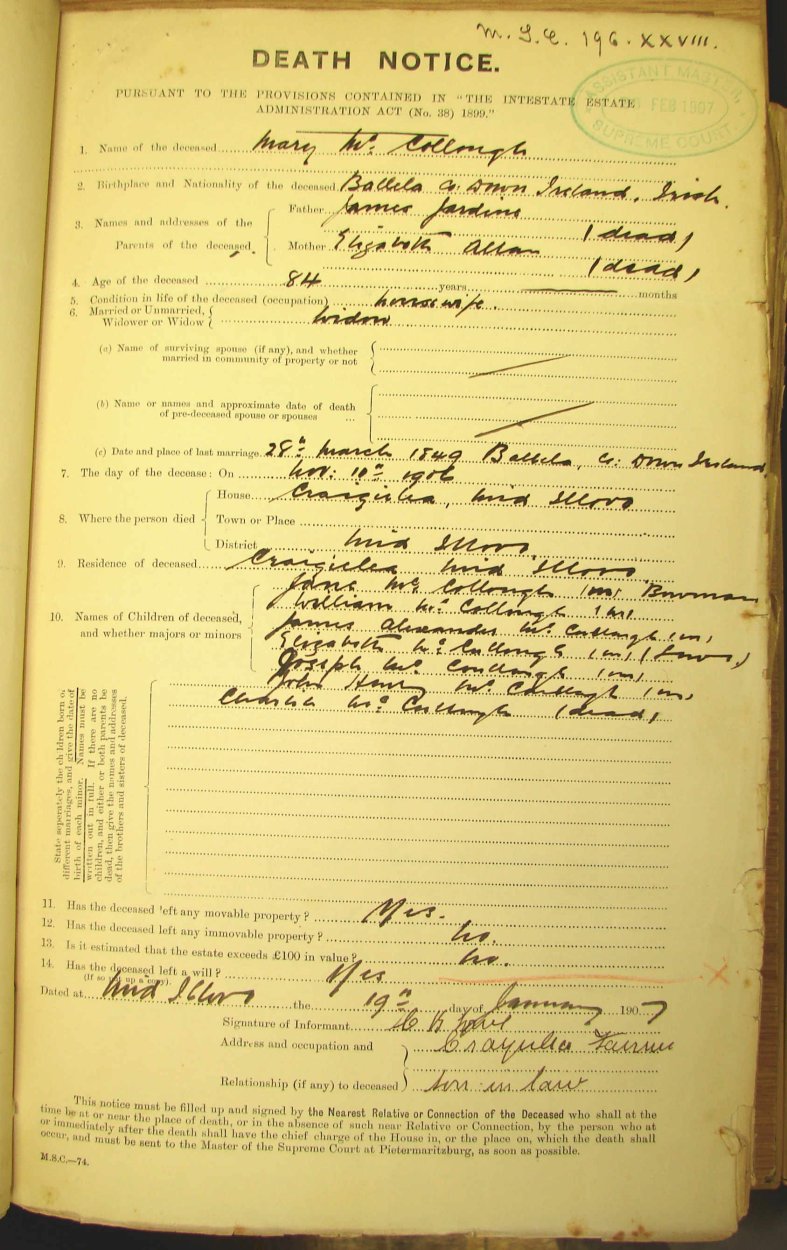 M.S.C. 196. XXVIII.
DEATH NOTICE.
ASSISTANT MASTER
FEB 1907
SUPREME COURT
PURSUANT TO THE PROVISIONS CONTAINED IN "THE INTESTATE ESTATE
ADMINISTRATION ACT (No. 38) 1899."
1. Name of the deceased Mary Mc Collough
2. Birthplace and Nationality of the deceased Ballela Co. Down Ireland, Irish.
3. Names and addresses of the Parents of the deceased.
Father James Jardine
(dead)
Mother Elizabeth Allan
(dead)
4. Age of the deceased 84 years months
5. Condition in life of the deceased (occupation) housewife.
6. Married or Unmarried, Widower or Widow Widow
(a) Name of surviving spouse (if any), and whether
married in community of property or not
(b) Name or names and approximate date of death
of pre-deceased spouse or spouses ...
(c) Date and place of last marriage. 28th March 1849 Ballela, Co. Down Ireland.
7. The day of the decease: On Nov: 10th 1906
8. Where the person died
House Craigielea, Mid Illovo
Town or Place
District Mid Illovo
9. Residence of deceased Craigielea Mid Illovo
10. Names of Children of deceased,
and whether majors or minors
Jane Mc Collough (m) Bowman
William Mc Collough (m)
James Alexander Mc Cullough (m)
Elizabeth Mc Cullough (m)
Joseph Mc Coullough (m)
John Henry Mc Coullough (m)
Charles Mc Cullough (dead)
State seperately the children born of
different marriages, and give the date of
birth of each minor. Names must be
written out in full. If there are no
children, and either or both parents be
dead, then give the names and addresses
of the brothers and sisters of deceased.
11. Has the deceased left any movable property? Yes.
12. Has the deceased left any immovable property? No.
13. Is it estimated that the estate exceeds £100 in value? No.
14. Has the deceased left a will? Yes X
Dated at Mid Illovo the 19th day of January 1907
Signature of Informant
Address and occupation and Craigielea Farmer
Relationship (if any) to deceased Son in law
This notice must be filled up and signed by the Nearest Relative or Connection of the Deceased who shall at the
time be at or near the place of death, or in the absence of such near Relative or Connection, by the person who at
or immediately after the death shall have the chief charge of the House in, or the place on, which the death shall
occur, and must be sent to the Master of the Supreme Court at Pietermaritzburg, as soon as possible.
M.S.C.—74.